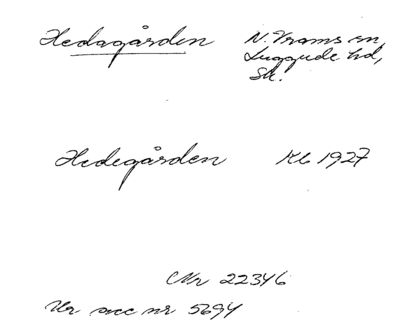 Hedagården N. Vrams sn,
Luggude hd,
Sk.
Hedegården Kb 1927
CNr 22346
Ur acc nr 5694